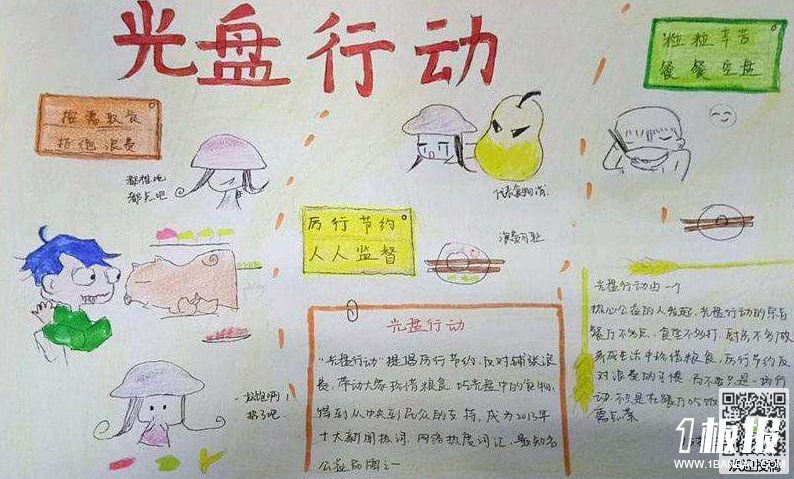 光盘行动
粒粒辛苦
餐餐空盘
按需取食
拒绝浪费
都想吃
都点吧
厉行节约
人人监督
浪费可耻
扔了吧
光盘行动
"光盘行动"提倡厉行节约,反对铺张浪
费,带动大家珍惜粮食,吃光盘中的食物,
得到从中央到民众的支持,成为2013年
十大新闻热词、网络热度词汇,最知名
公益品牌之一
光盘行动由一个
热心公益的人发起,光盘行动的宗旨
餐厅不多点、食堂不多打、厨房不多做
养成生活中珍惜粮食、厉行节约反
对浪费的习惯 而不要只是一场行
动 不只是在餐厅吃饭
需点菜
1板报
WWW.1BANBAO.COM
欢迎投稿